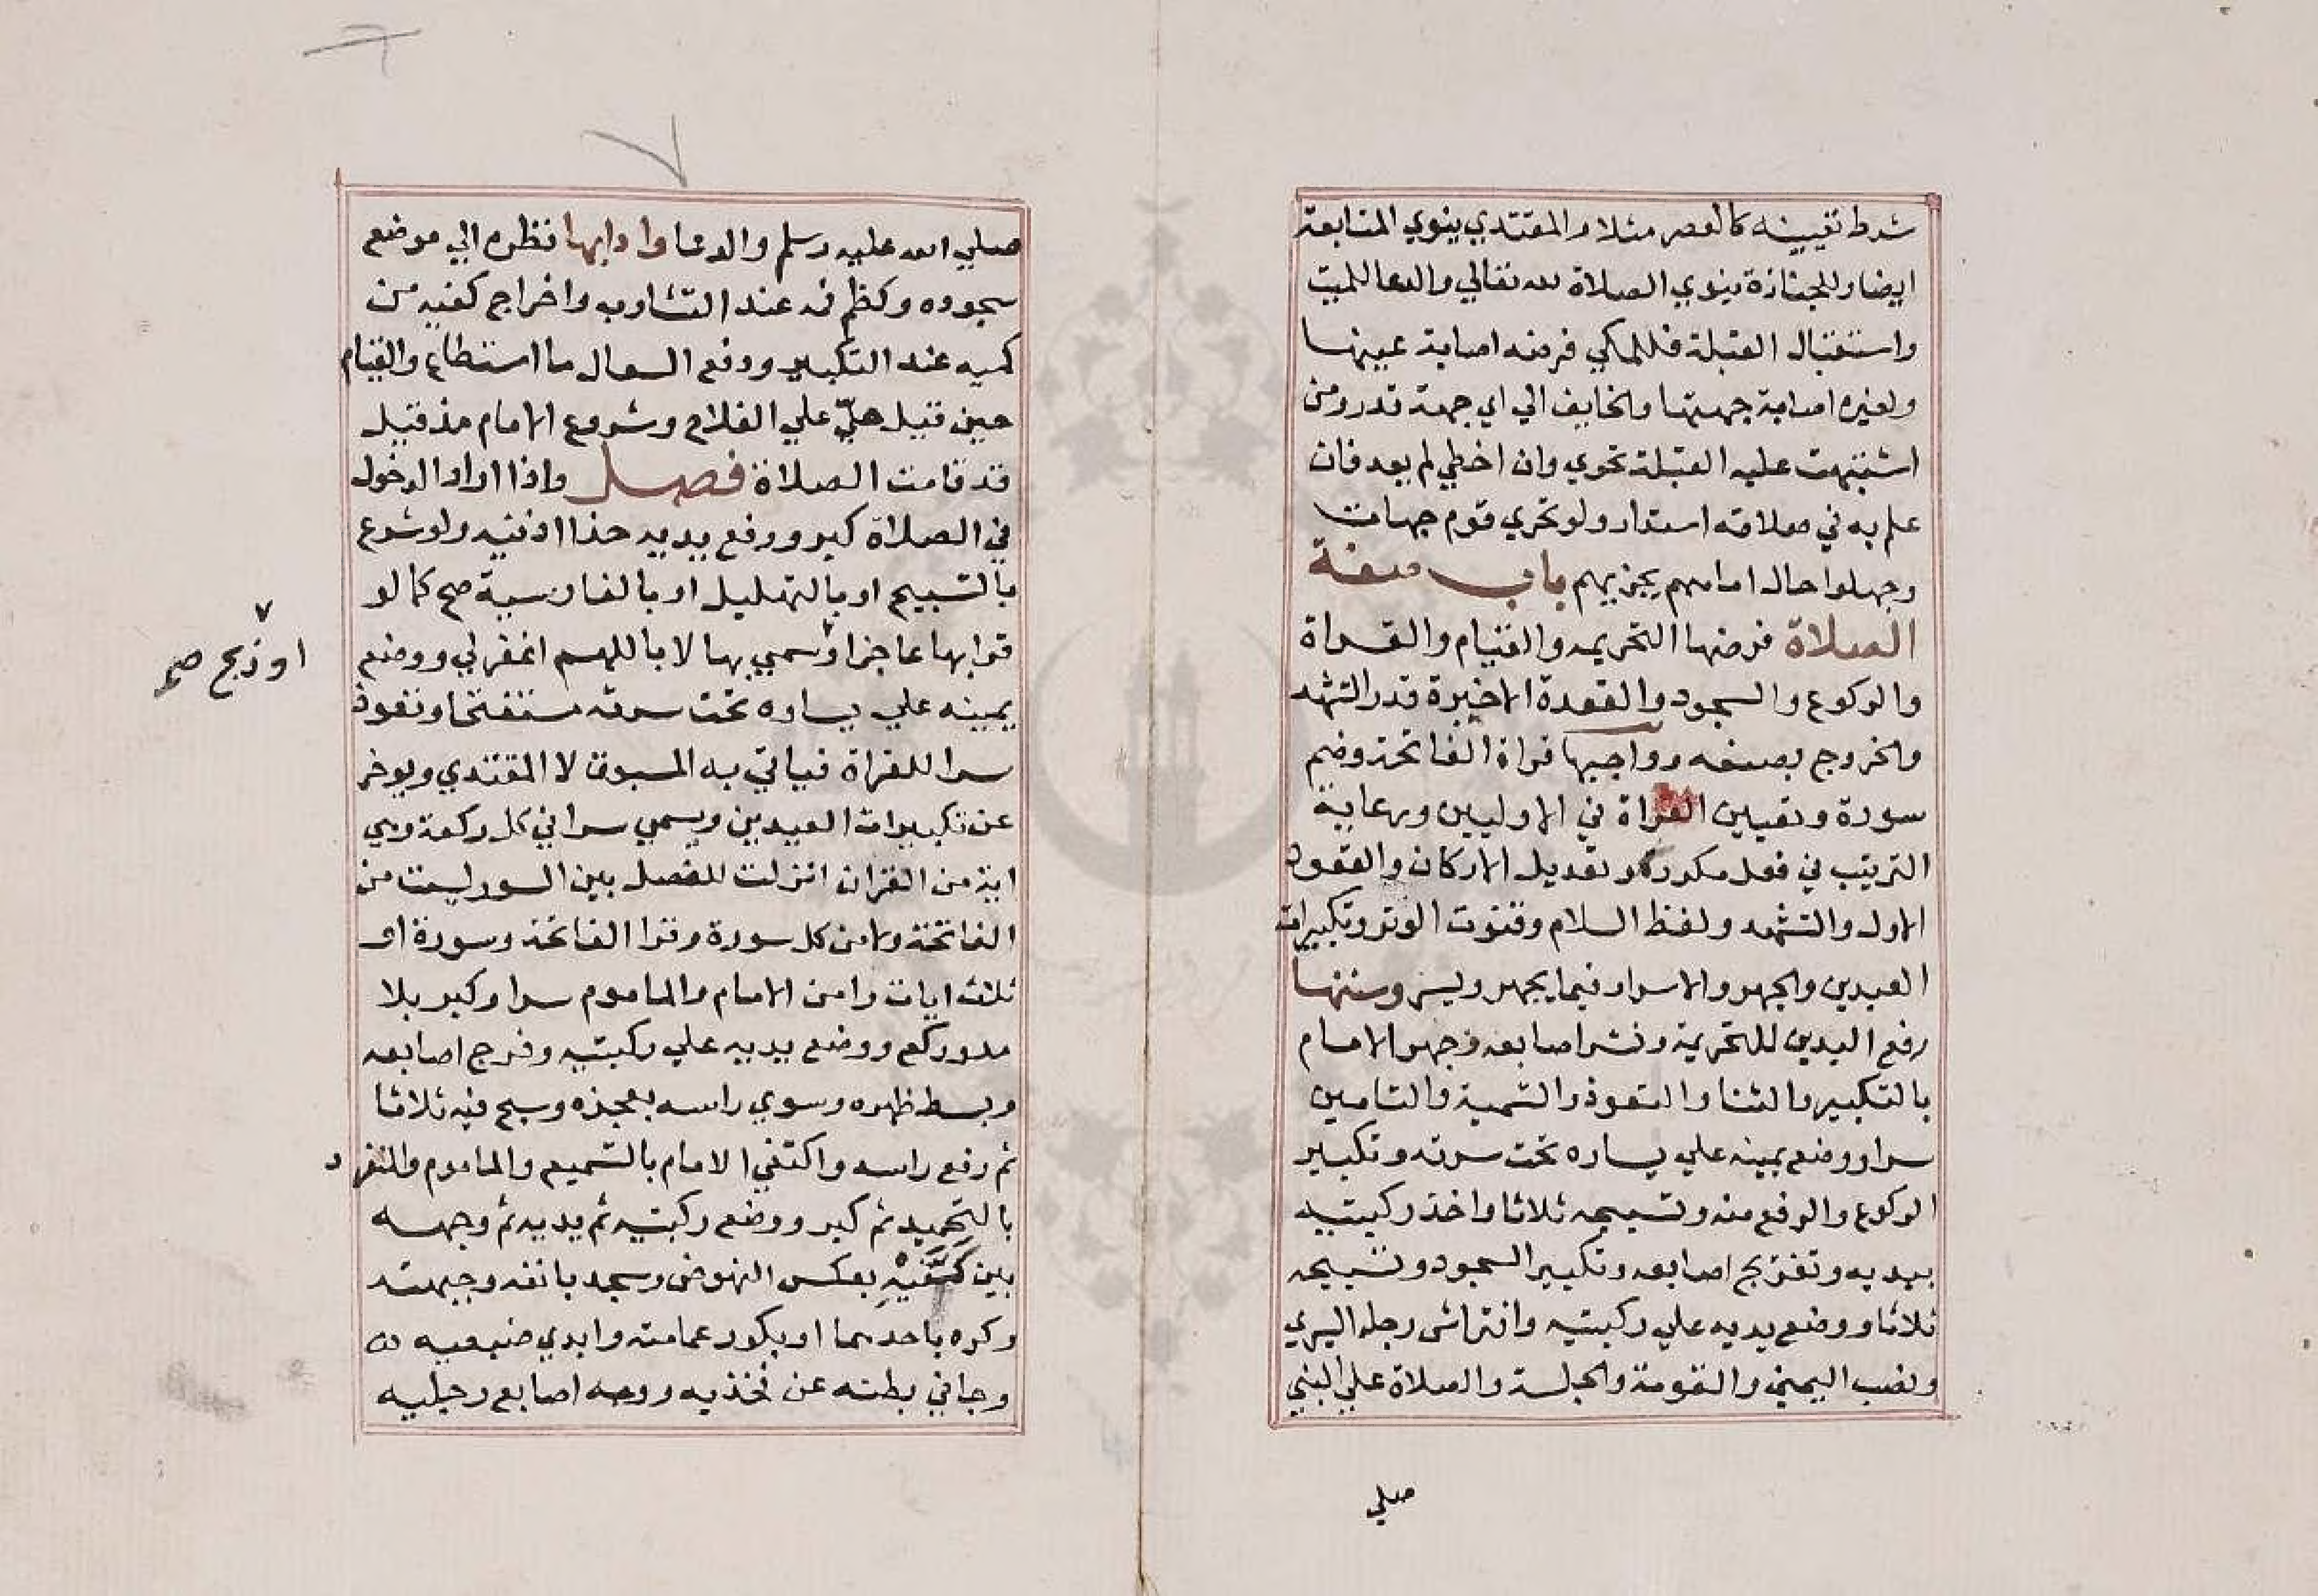 شرط تعيينه كالعصر مثلا والمقتدي ينوي المتابعة
ايضا وللجنازة ينوي الصلاة لله تعالي والدعا للميت
واستقبال القبلة فللمكي فرضه اصابة عينها
ولغيره اصابة جهتها والخايف الي اي جهة قدر ومن
اشتبهت عليه القبلة تحري وان اخطي لم يعد فان
علم به في صلاته استدار ولو تحري قوم جهات
وجهلوا حال امامهم يجزيهم باب صفة
الصلاة فرضها التحريمه والقيام والقراة
والركوع والسجود والقعدة الاخيرة قدر التشهد
والخروج بصنعه وواجبها قراة الفاتحة وضم
سورة وتعيين القراة في الاوليين ورعاية
الترتيب في فعل مكرر وتعديل الاركان والقعود
الاول والتشهد ولفظ السلام وقنوت الوتر وتكبيرات
العيدين والجهر والاسرار فيما يجهر ويسر وسننها
رفع اليدين للتحريمة ونشر اصابعه وجهر الامام
بالتكبير والثنا والتعوذ والتسمية والتامين
سرا ووضع يمينه علي يساره تحت سرته وتكبير
الركوع والرفع منه وتسبيحه ثلاثا واخذ ركبتيه
بيديه وتفريج اصابعه وتكبير السجود وتسبيحه
ثلاثا ووضع يديه علي ركبتيه وافتراش رجله اليسري
ونصب اليمني والقومة والجلسة والصلاة علي النبي
صلي
صلي الله عليه وسلم والدعا وادابها نظره الي موضع
سجوده وكظم فه عند التثاوب واخراج كفيه من
كميه عند التكبير ودفع السعال ما استطاع والقيام
حين قيل حيّ علي الفلاح وشروع الامام مذ قيل
قد قامت الصلاة فصل واذا اراد الدخول
في الصلاة كبر ورفع يديه حذا اذنيه ولو شرع
بالتسبيح او بالتهليل او بالفارسية صح كما لو
قرا بها عاجزا وسمي بها لا باللهم اغفر لي ووضع
او ذبح صح
يمينه علي يساره تحت سرته مستفتحا وتعوذ
سرا للقراة فياتي به المسبوق لا المقتدي ويوخر
عن تكبيرات العيدين ويسمي سرا في كل ركعة وهي
اية من القران انزلت للفصل بين السور ليست من
الفاتحة ولا من كل سورة وقرا الفاتحة وسورة او
ثلاث ايات وامن الامام والماموم سرا وكبر بلا
مد وركع ووضع يديه علي ركبتيه وفرج اصابعه
وبسط ظهره وسوي راسه بعجزه وسبح فيه ثلاثا
ثم رفع راسه واكتفي الامام بالتسميع والماموم والمنفرد
بالتحميد ثم كبر ووضع ركبتيه ثم يديه ثم وجهه
بين كَفَّيْهِ بعكس النهوض وسجد بانفه وجبهته
وكره باحدهما او بكور عمامته وابدي ضبعيه
وجافي بطنه عن فخذيه ووجه اصابع رجليه